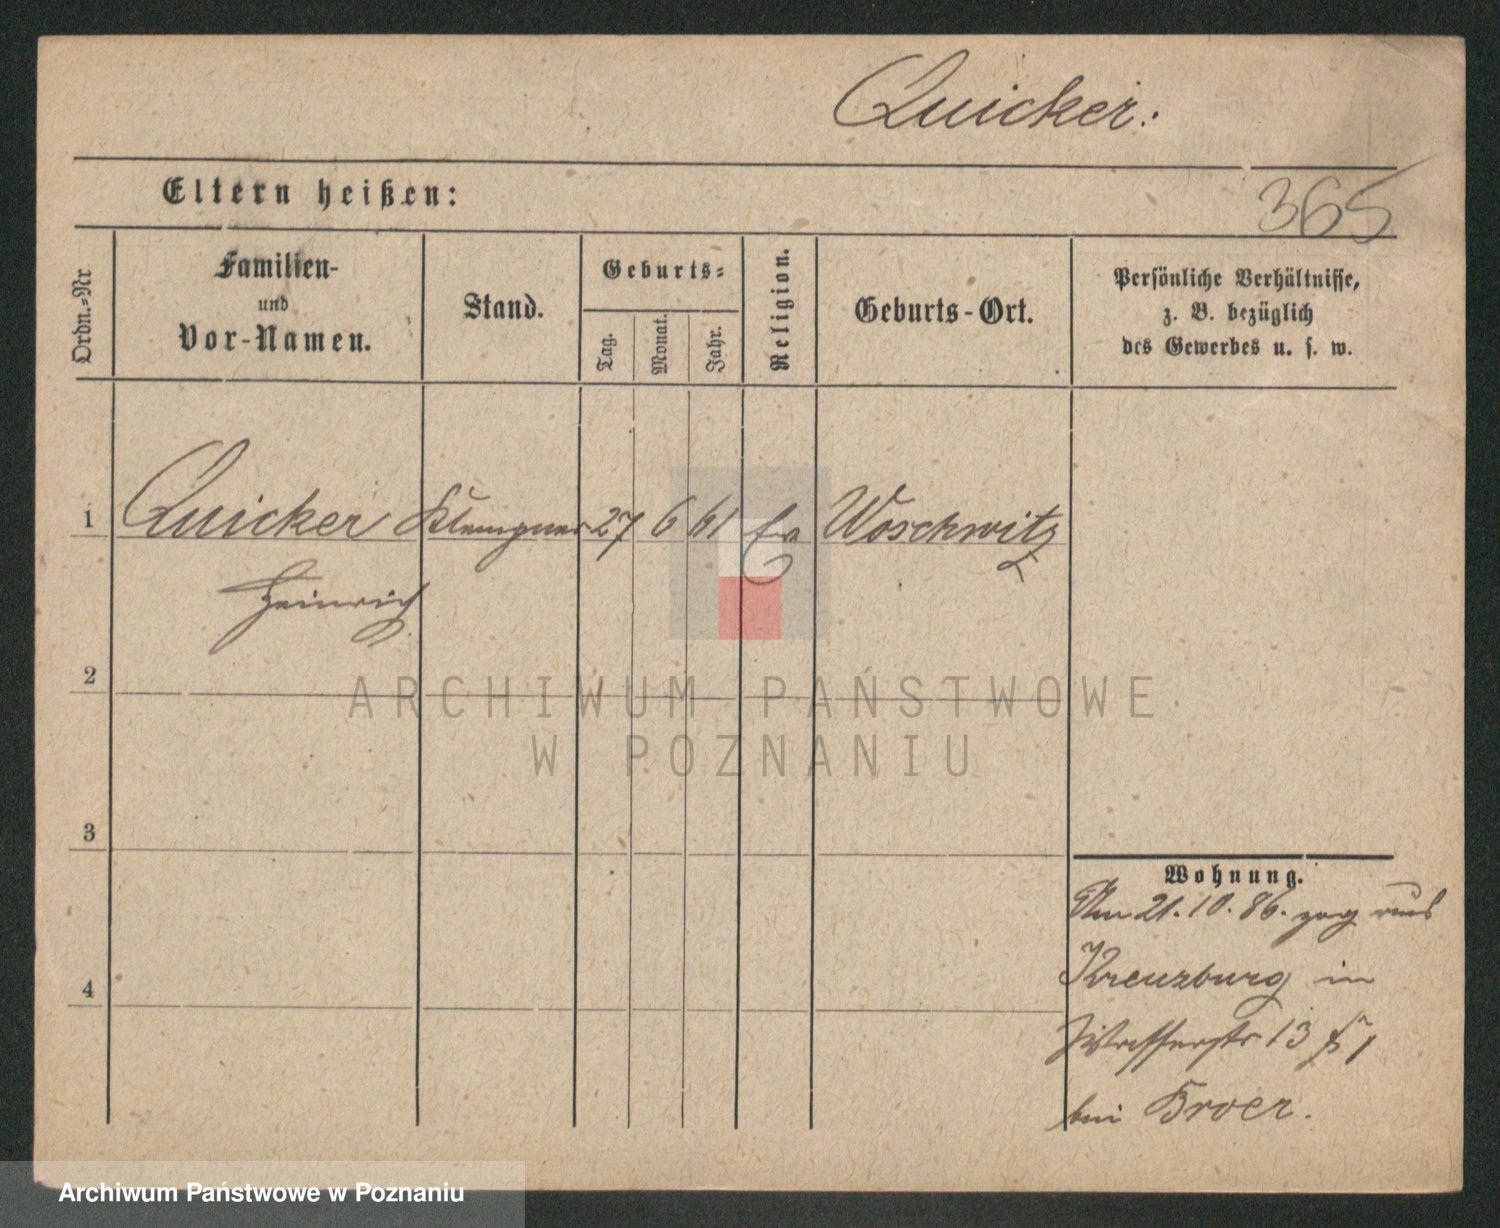 Quicker:
Eltern heißen:
365
Ordn.=Nr
Familien-
und
Vor-Namen.
Stand.
Geburts=
Tag.
Monat.
Jahr.
Religion.
Geburts-Ort.
Persönliche Verhältnisse,
z. B. bezüglich
des Gewerbes u. s. w.
1 Quicker Klempner 27 6 61 Ev Woschwitz
Heinrich
2
ARCHIWUM PAŃSTWOWE
W POZNANIU
3
Wohnung.
Am 21.10.86. zog aus
4
Kreuzburg in
Wasserstr 13
bei Broer.
Archiwum Państwowe w Poznaniu